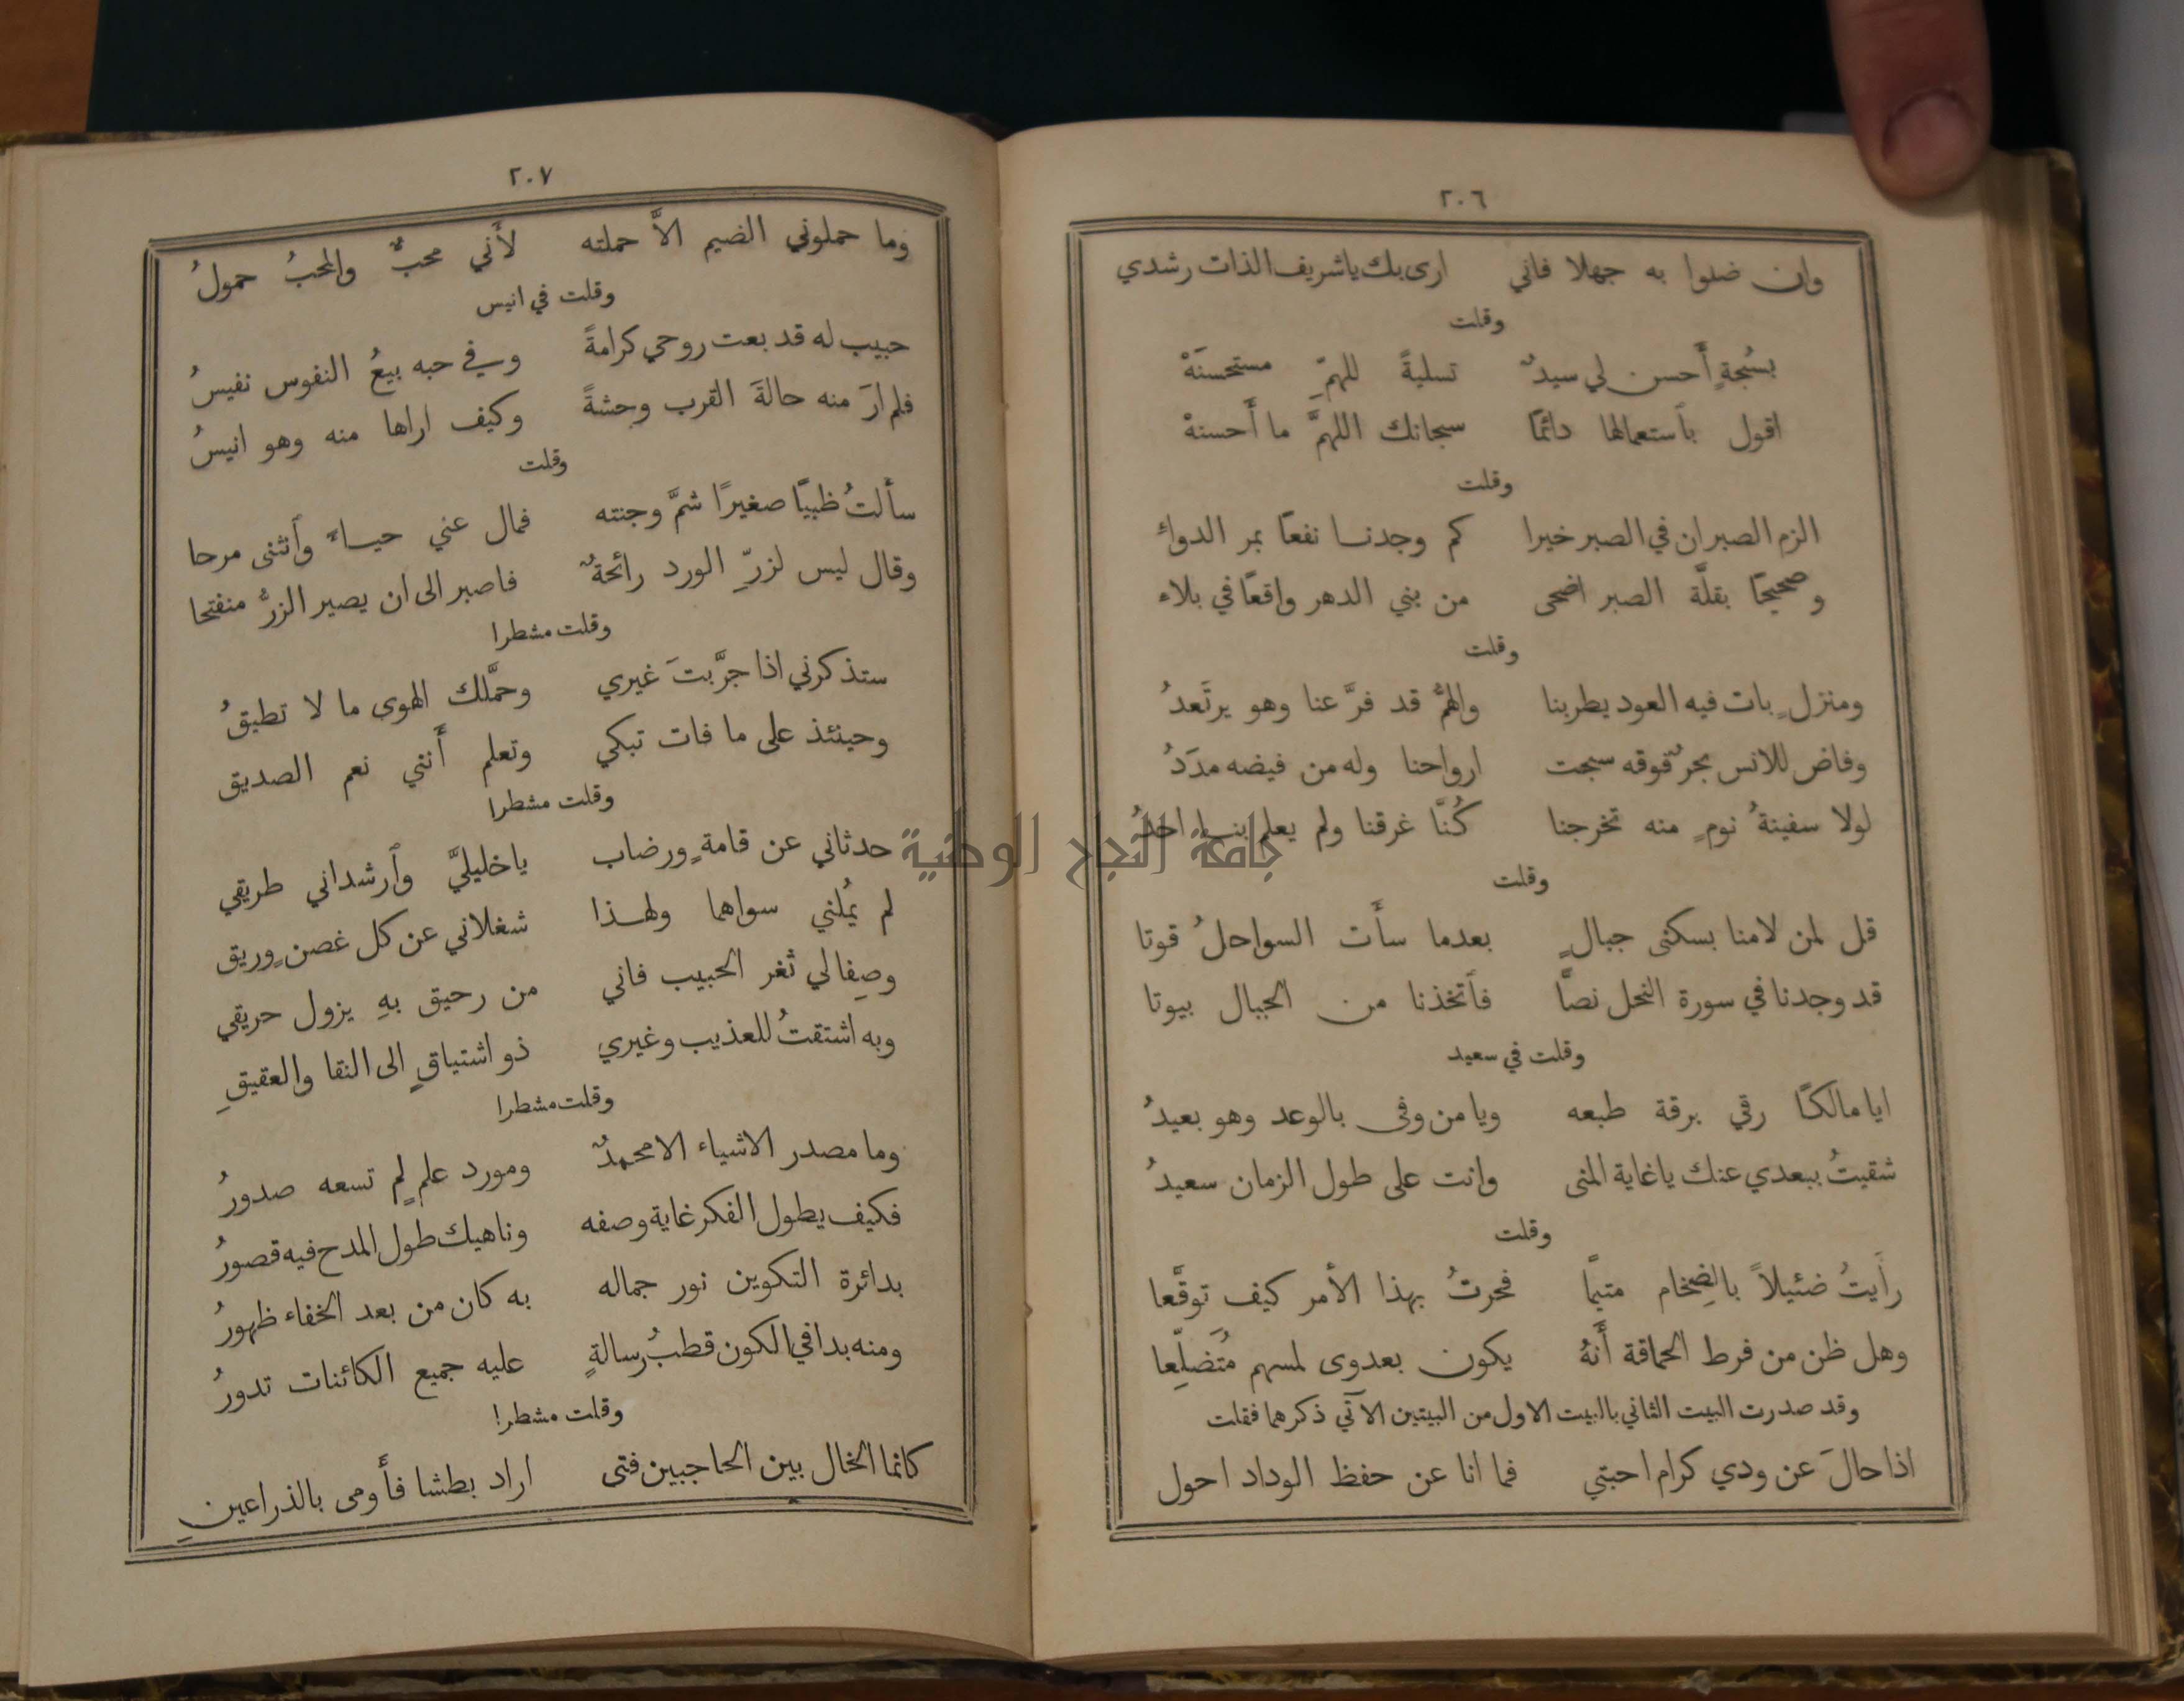 ٢٠٦
وان ضلوا به جهلا فاني ارى بك ياشريف الذات رشدي
وقلت
بسُبحةٍ أَحسن لي سيدٌ تسليةً للهمِّ مستحسنَهْ
اقول بأستعمالها دائمًا سبحانك اللهمَّ ما أَحسنهْ
وقلت
الزم الصبر ان في الصبر خيرا كم وجدنا نفعًا بمر الدواءِ
وصحيحًا بقلَّة الصبر اضحى من بني الدهر واقعًا في بلاء
وقلت
ومنزلٍ بات فيه العود يطربنا والهمُّ قد فرَّ عنا وهو يرتَعدُ
وفاض للانس بحرٌ فوقه سبحت ارواحنا وله من فيضه مدَدُ
لولا سفينةُ نومٍ منه تخرجنا كُنَّا غرقنا ولم يعلم بنا احدُ
وقلت
قل لمن لامنا بسكنى جبالٍ بعدما سأَت السواحلُ قوتا
قد وجدنا في سورة النحل نصاًّ فأتخذنا من الجبال بيوتا
وقلت في سعيد
ايا مالكًا رقي برقة طبعه ويا من وفى بالوعد وهو بعيدُ
شقيتُ ببعدي عنك يا غاية المنى وانت على طول الزمان سعيدُ
وقلت
رأَيتُ ضئيلاً بالضِخام متيمًّا فحرتُ بهذا الأمر كيف توقَّعا
وهل ظن من فرط الحماقة أَنهُ يكون بعدوى لمسهم مُتَضلِّعا
وقد صدرت البيت الثاني بالبيت الاول من البيتين الآتي ذكرهما فقلت
اذا حالَ عن ودي كرام احبتي فما انا عن حفظ الوداد احول
٢٠٧
وما حملوني الضيم الاَّ حملته لأَني محبٌّ والمحبُ حمولُ
وقلت في انيس
حبيب له قد بعت روحي كرامةً وفي حبه بيعُ النفوس نفيسُ
فلم ارَ منه حالةَ القرب وحشةً وكيف اراها منه وهو انيسُ
وقلت
سألتُ ظبيًا صغيرًا شمَّ وجنته فمال عني حياءً وأنثنى مرحا
وقال ليس لزرِّ الورد رائحةٌ فاصبر الى ان يصير الزرُّ منفتحا
وقلت مشطرا
ستذكرني اذا جرَّبتَ غيري وحمَّلك الهوى ما لا تطيقُ
وحينئذ على ما فات تبكي وتعلم أَنني نعم الصديق
وقلت مشطرا
حدثاني عن قامةٍ ورضاب ياخليليَّ وأرشداني طريقي
لم يُملني سواهما ولهذا شغلاني عن كل غصنٍ وريق
وصِفا لي ثغر الحبيب فاني من رحيق بهِ يزول حريقي
وبه اشتقتُ للعذيب وغيري ذو اشتياقٍ الى النقا والعقيقِ
وقلت مشطرا
وما مصدر الاشياء الا محمدٌ ومورد علمٍ لم تسعه صدورُ
فكيف يطول الفكر غاية وصفه وناهيك طول المدح فيه قصورُ
بدائرة التكوين نور جماله به كان من بعد الخفاء ظهورُ
ومنه بدا في الكون قطبُ رسالةٍ عليه جميع الكائنات تدورُ
وقلت مشطرا
كانما الخال بين الحاجبين فتى اراد بطشا فأَومى بالذراعينِ
جامعة النجاح الوطنية